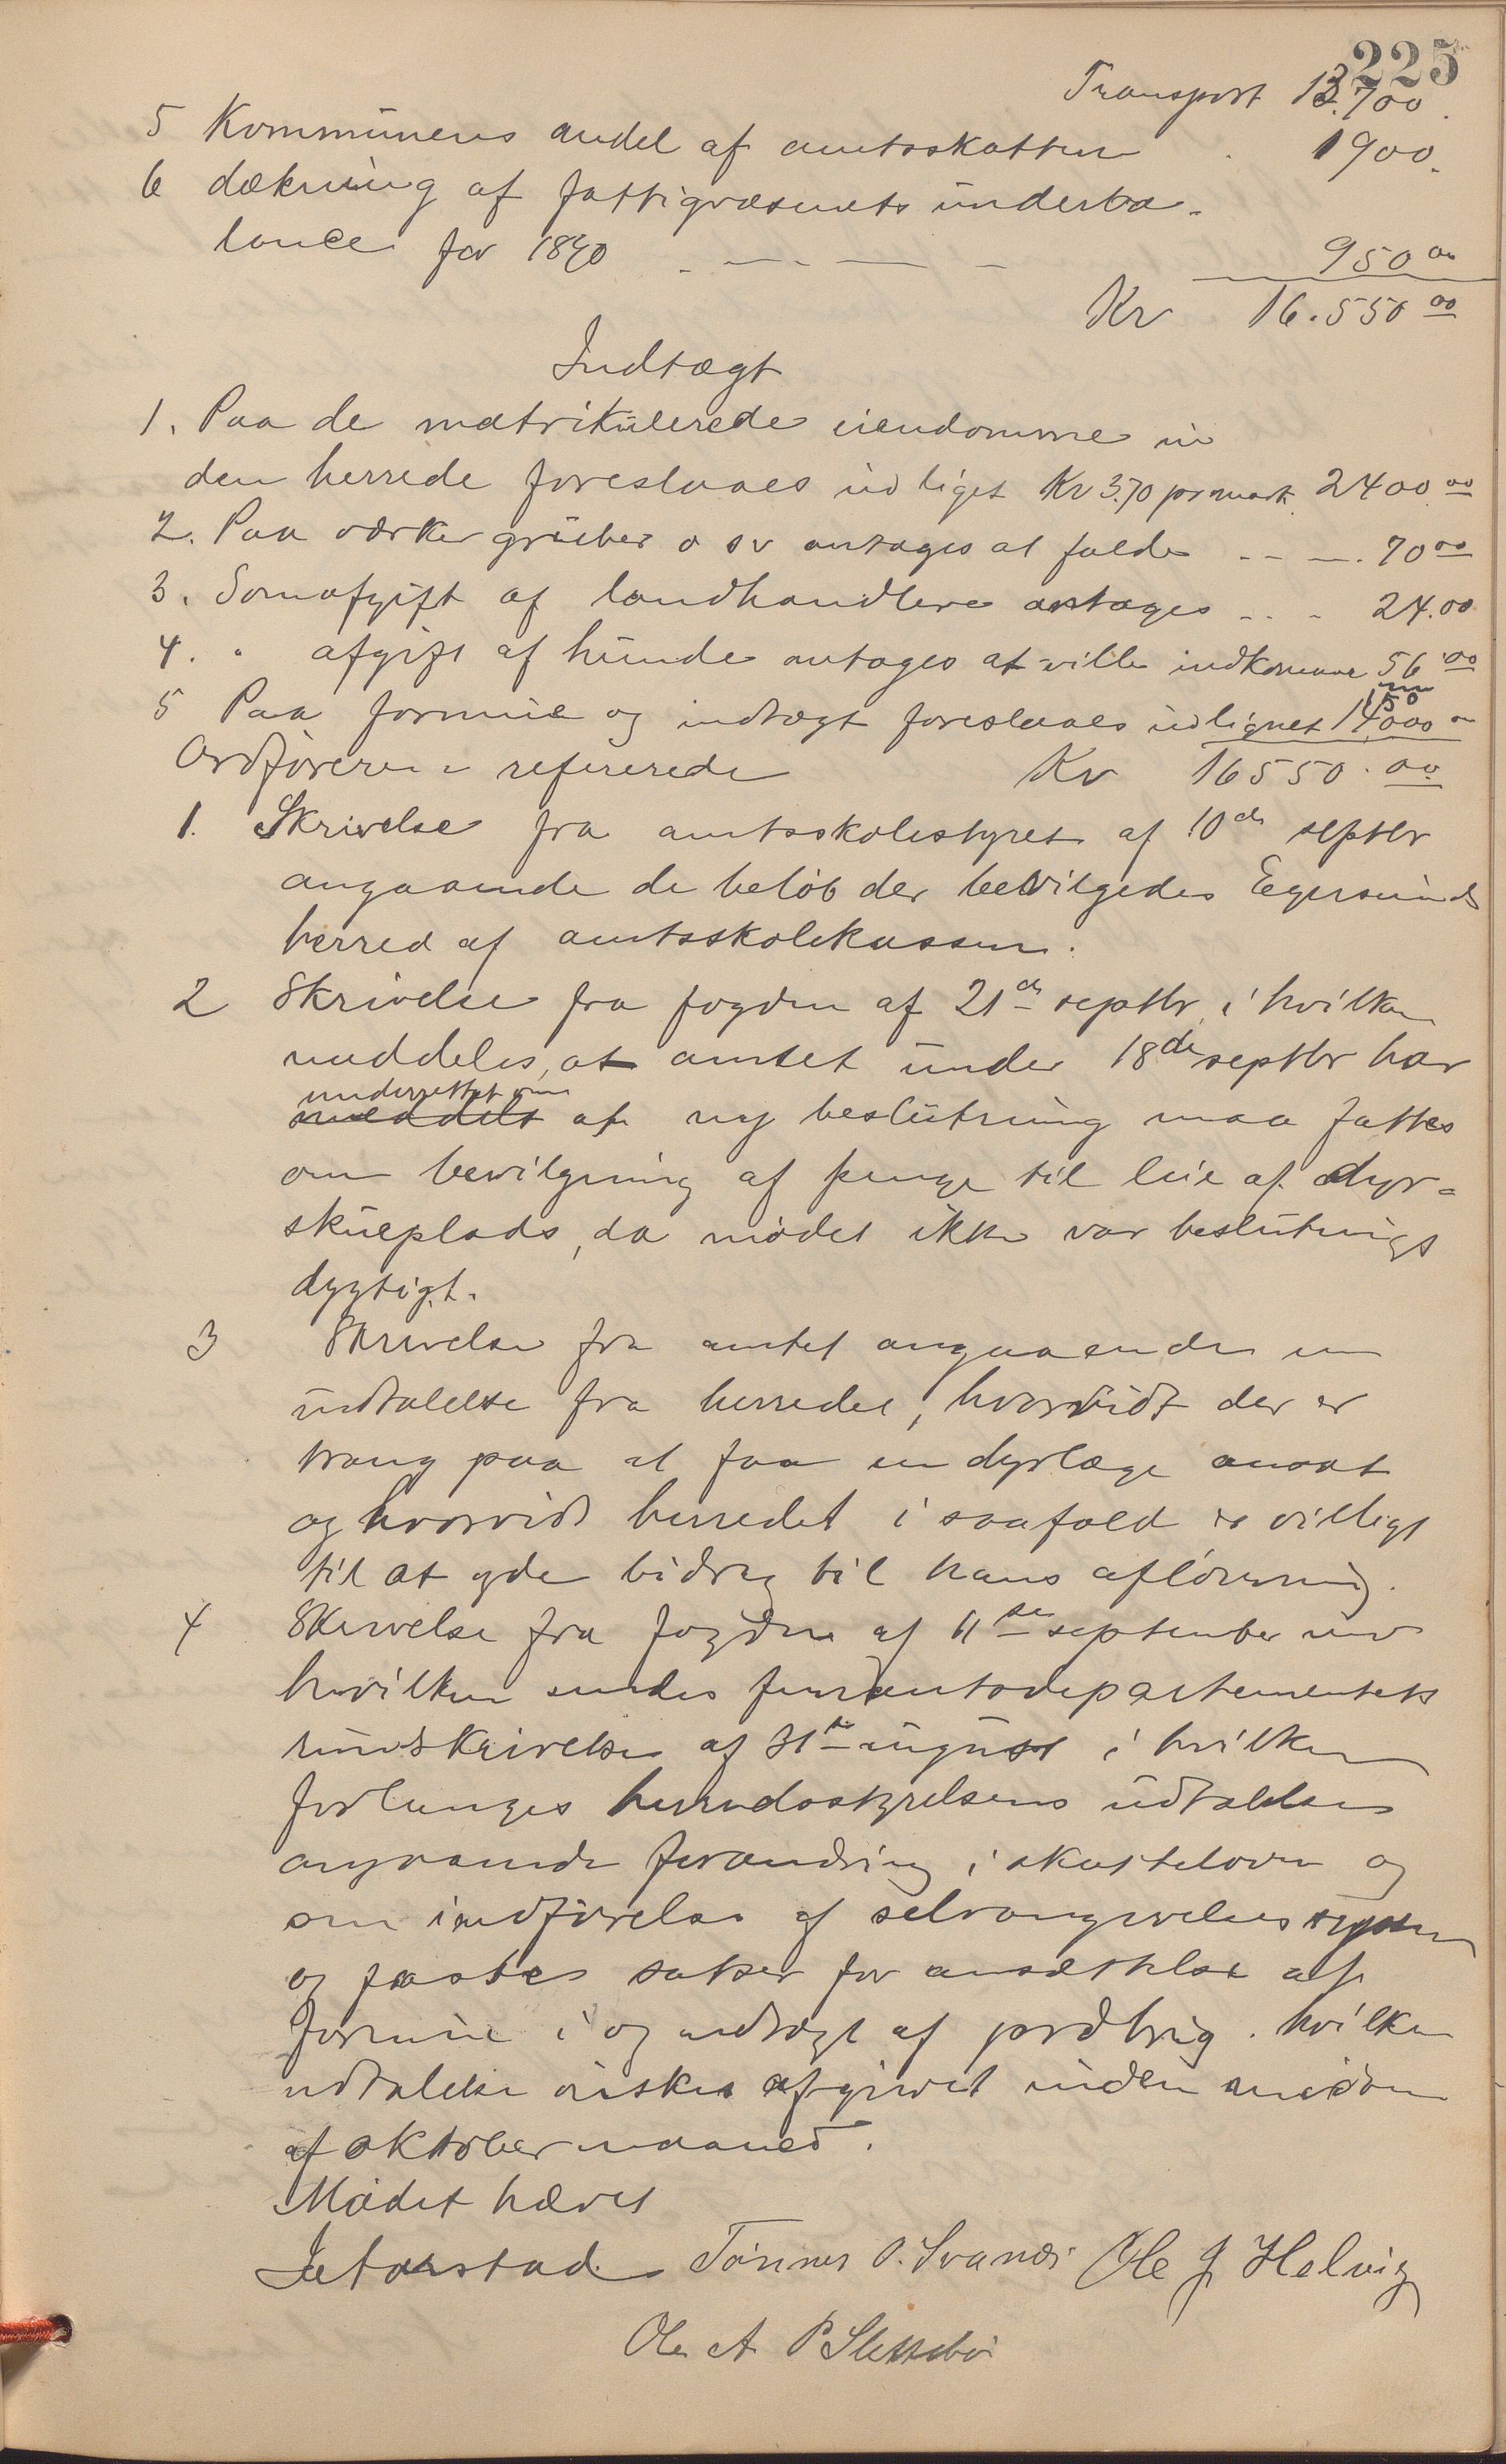 225
Transport 13.700.
5 Kommunens andel af amtsskatten . 1900.
6 dækning af fattigvæsenets underba-
lance for 1890 . - - - - 950 00
Kr 16.550 00
Indtægt
1. Paa de matrikulerede eiendomme in
den herrede foreslaaes udliget Kr 3.70 pr mark. 2400 00
2. Paa værker gruber o sv antages at falde - - - . 70 00
3. Somafgift af landhandlere antages - - - 24.00
4. " afgift af hunde antages at ville indkomme 56 00
5 Paa formue og indtægt foreslaaes udlignet 14000
Ordføreren refererede Kr 16550.00
1. Skrivelse fra amtsskolestyret af 10de septbr
angaaende de beløb der bevilgedes Egersunds
herred af amtsskolekassen.
2 Skrivelse fra fogden af 21de septbr, i hvilken
meddeles, at amtet under 18de septbr har
underrettet om
meddelt at ny beslutning maa fattes
om bevilgning af penge til leie af dyr-
skueplads, da mødet ikke var beslutnings
dygtigt.
3 Skrivelse fra amtet angaaende en
udtalelse fra herredet, hvorvidt der er
trang paa at faa en dyrlæge ansat
og hvorvidt herredet i saafald er villigt
til at yde bidrag til hans aflønning.
4 Skrivelse fra fogden af 11te september med
hvilken sendes finantsdepartementets
rundskrivelse af 31te august i hvilken
forlanges herredsstyrelsens udtalelse
angaaende forandring i skatteloven og
om indførelse af selvangivelsessystem
og faste satser for ansættelse af
formue i og indtægt af jordbrug. hvilken
udtalelse ønskes afgivet inden midten
af oktober maaned.
Mødet hævet
Tønnes O. Svanes Ole J Helvig
Ole A P Slettebø